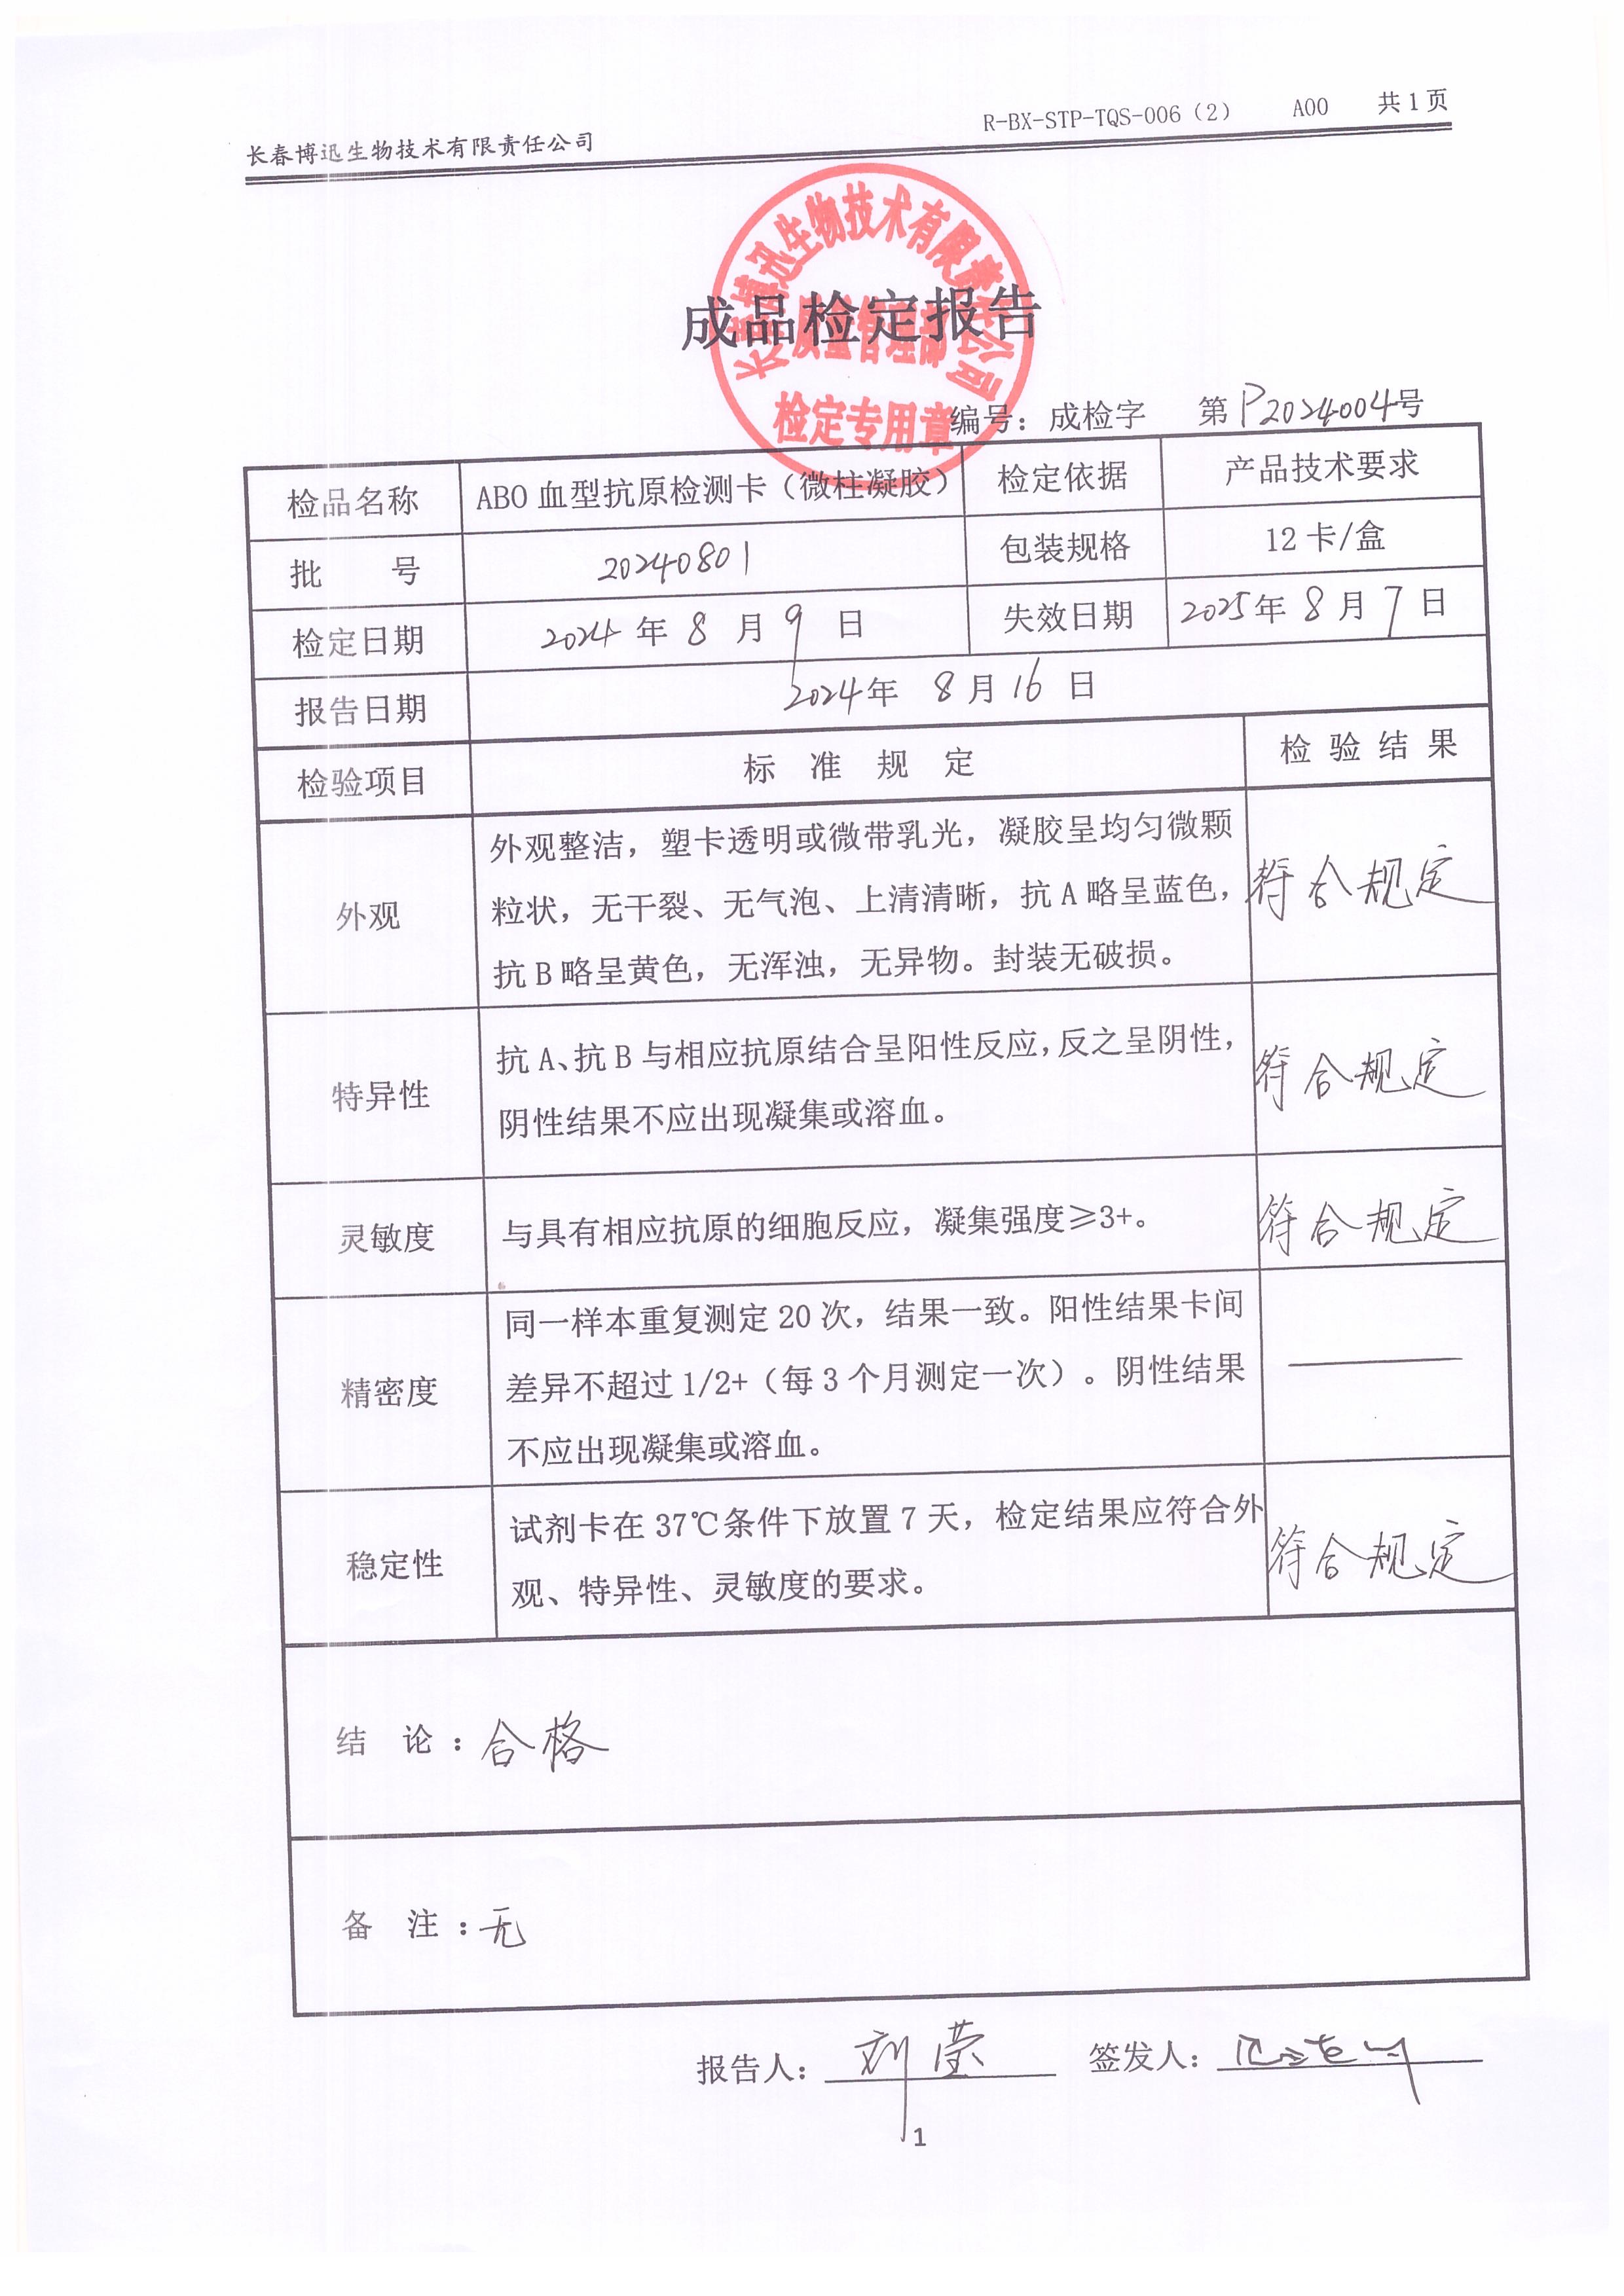 长春博迅生物技术有限责任公司
R-BX-STP-TQS-006（2） A00 共1页
长春博迅生物技术有限责任公司
质量管理部
检定专用章
成品检定报告
编号：成检字 第P2024004号
检品名称 ABO血型抗原检测卡（微柱凝胶） 检定依据 产品技术要求
批 号 20240801 包装规格 12卡/盒
检定日期 2024年8月9日 失效日期 2025年8月7日
报告日期 2024年8月16日
检验项目 标准规定 检验结果
外观
外观整洁，塑卡透明或微带乳光，凝胶呈均匀微颗
粒状，无干裂、无气泡、上清清晰，抗A略呈蓝色，
抗B略呈黄色，无浑浊，无异物。封装无破损。
符合规定
特异性
抗A、抗B与相应抗原结合呈阳性反应，反之呈阴性，
阴性结果不应出现凝集或溶血。
符合规定
灵敏度 与具有相应抗原的细胞反应，凝集强度≥3+。 符合规定
精密度
同一样本重复测定20次，结果一致。阳性结果卡间
差异不超过1/2+（每3个月测定一次）。阴性结果
不应出现凝集或溶血。
稳定性
试剂卡在37℃条件下放置7天，检定结果应符合外
观、特异性、灵敏度的要求。
符合规定
结 论：合格
备 注：无
报告人：刘莹 签发人：
1